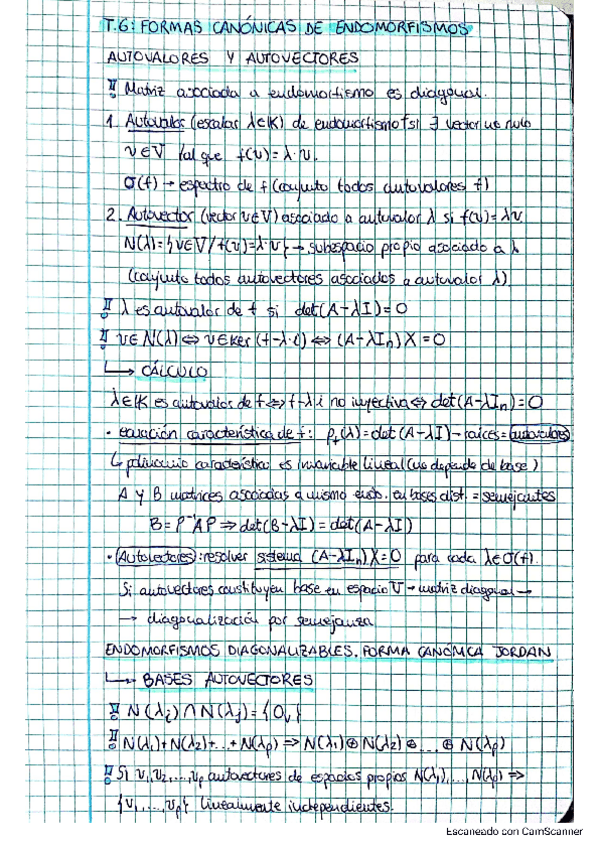 T.6: FORMAS CANÓNICAS DE ENDOMORFISMOS
AUTOVALORES Y AUTOVECTORES
Matriz asociada a endomorfismo es diagonal.
1. Autovalor (escalar λ∈K) de endomorfismo f si ∃ vector no nulo
v∈V tal que f(v)=λ·v.
σ(f) → espectro de f (conjunto todos autovalores f)
2. Autovector (vector v∈V) asociado a autovalor λ si f(v)=λv
N(λ)={v∈V/f(v)=λ·v} → subespacio propio asociado a λ
(conjunto todos autovectores asociados a autovalor λ)
λ es autovalor de f si det(A-λI)=0
v∈N(λ)⇔v∈Ker(f-λ·i)⇔(A-λIn)X=0
↳ CÁLCULO
λ∈K es autovalor de f⇔f-λi no inyectiva⇔det(A-λIn)=0
· ecuación característica de f: pf(λ)=det(A-λI)→raíces=autovalores
↳ polinomio característico es invariable lineal (no depende de base)
A y B matrices asociadas a mismo endo. en bases dist. = semejantes
B=P⁻¹AP⇒det(B-λI)=det(A-λI)
· Autovectores: resolver sistema (A-λIn)X=0 para cada λ∈σ(f).
Si autovectores constituyen base en espacio V→matriz diagonal→
→ diagonalización por semejanza
ENDOMORFISMOS DIAGONALIZABLES. FORMA CANÓNICA JORDAN
↳ BASES AUTOVECTORES
N(λi)∩N(λj)={0v}
N(λ1)+N(λ2)+...+N(λp)⇒N(λ1)⊕N(λ2)⊕...⊕N(λp)
Si v1,v2,...,vp autovectores de espacios propios N(λ1),...,N(λp)⇒
{v1,...,vp} linealmente independientes.
Escaneado con CamScanner